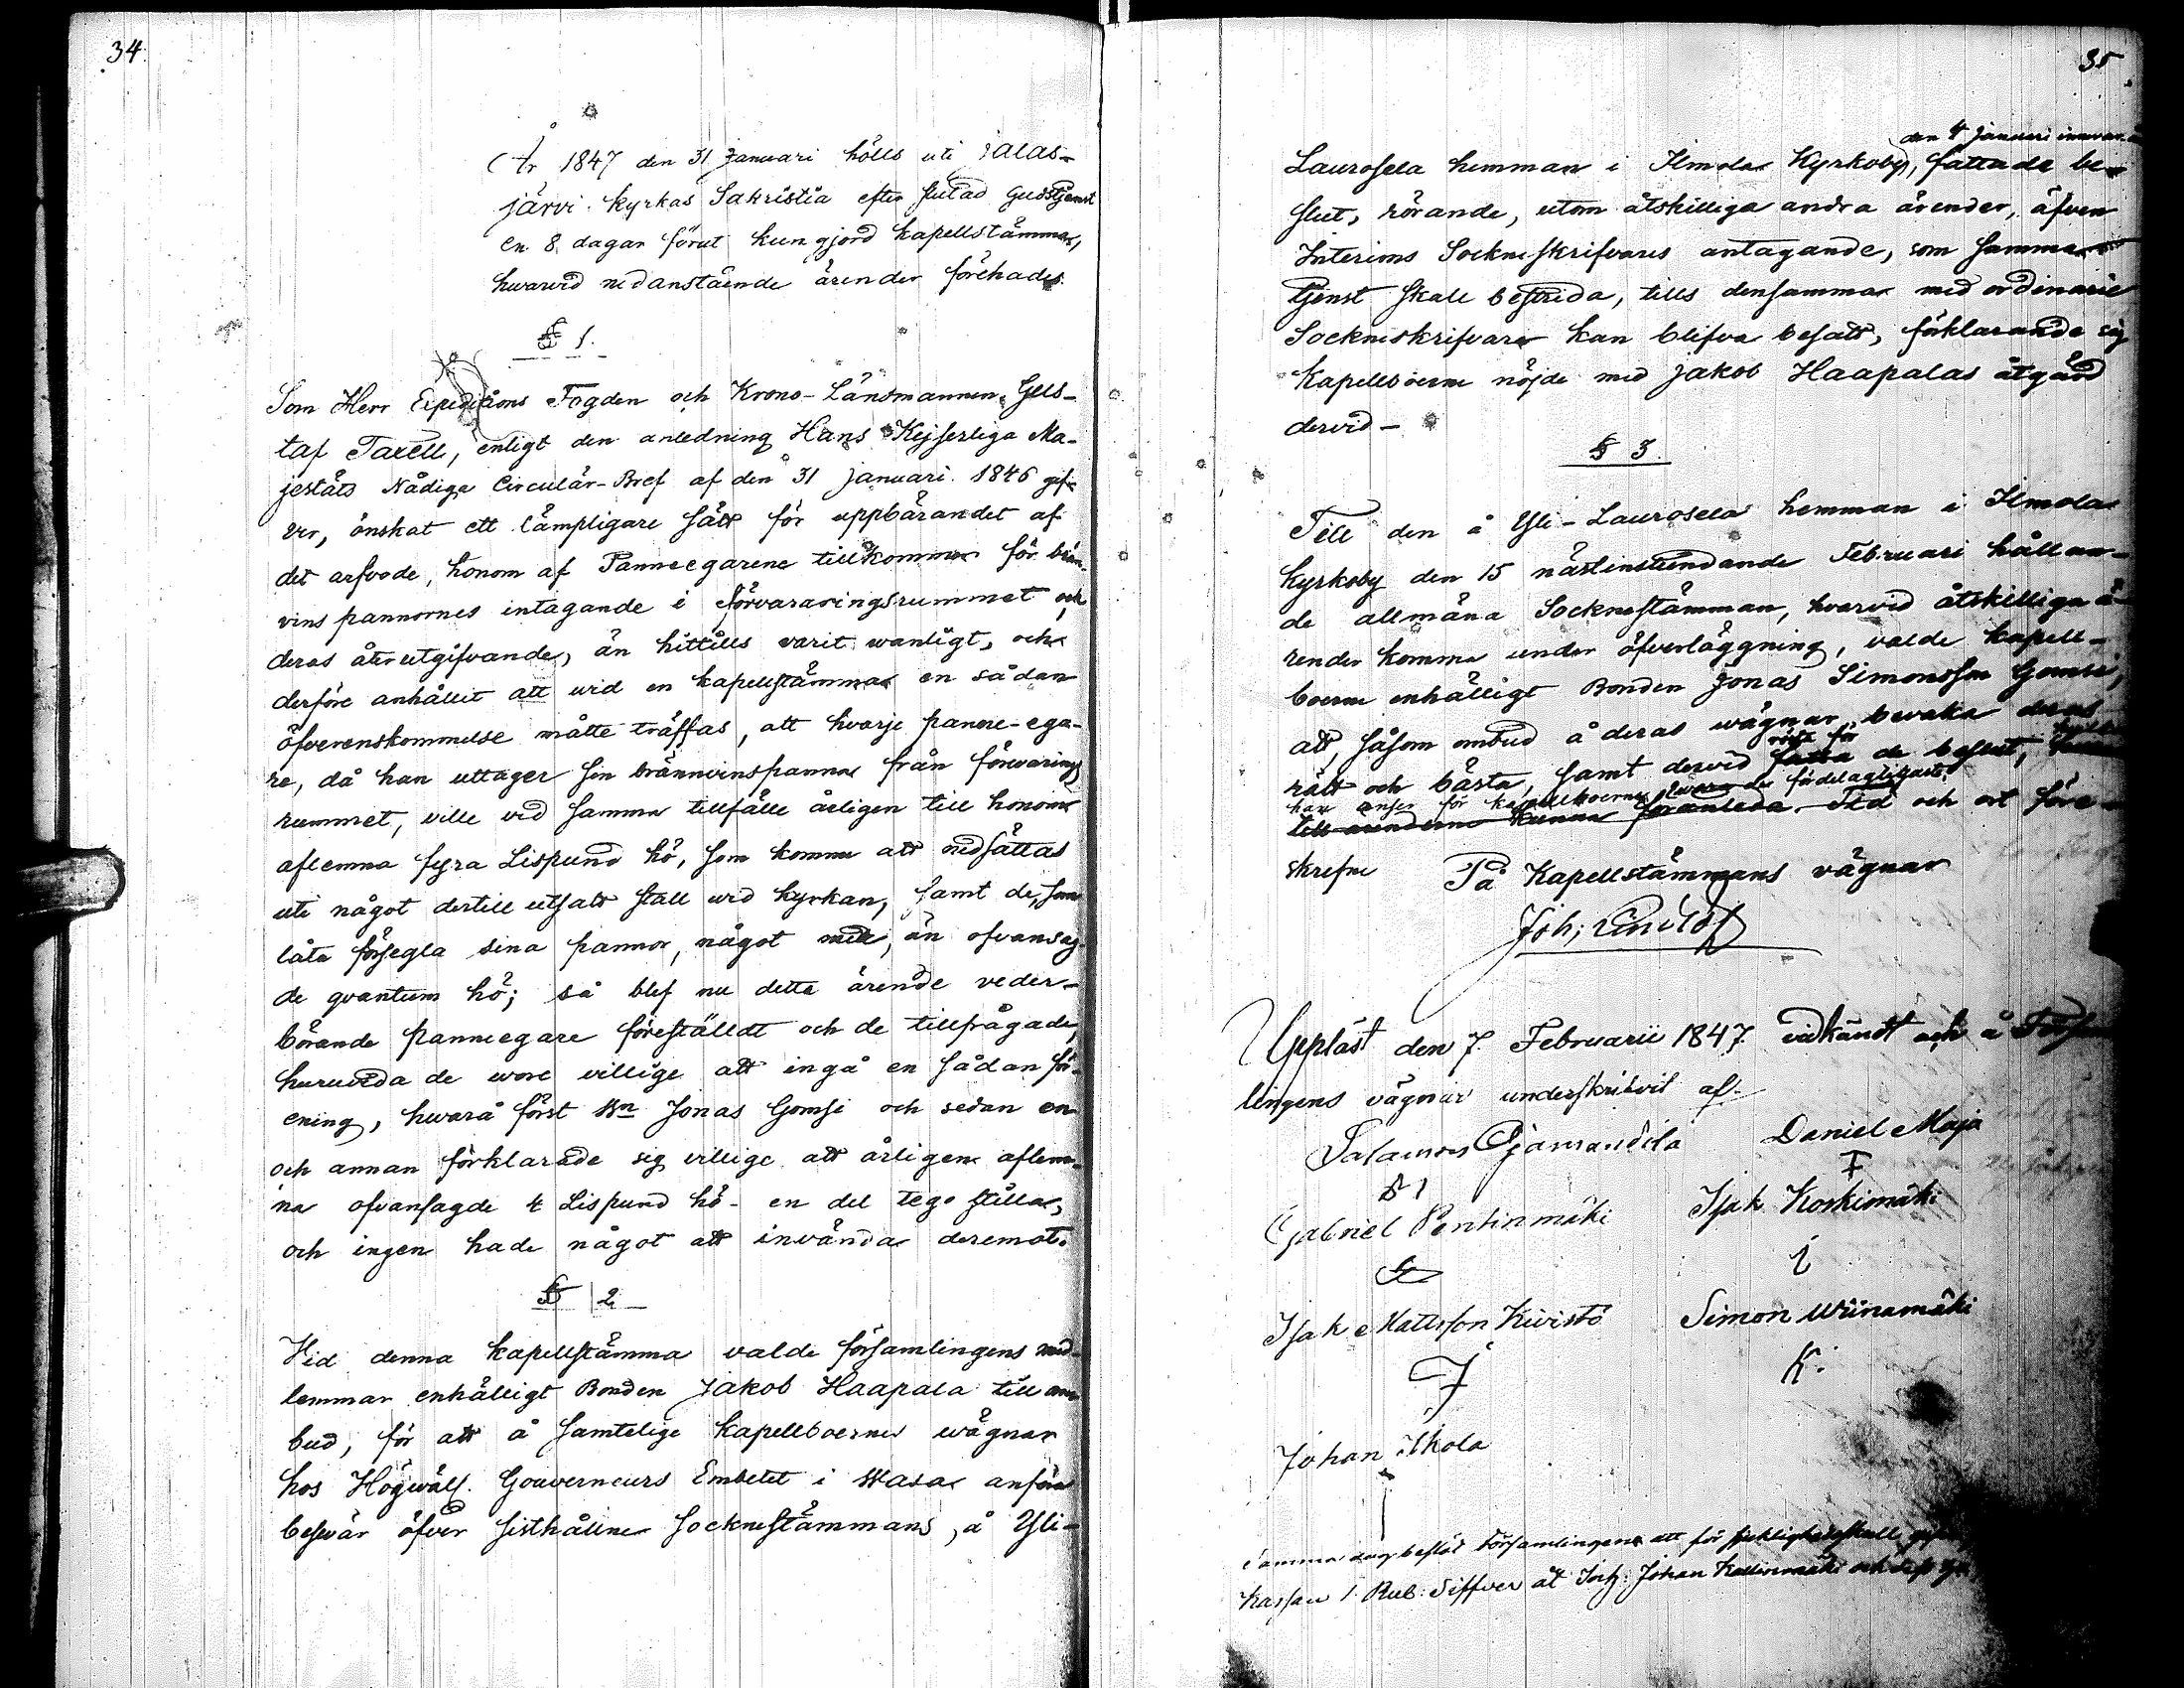 34.
År 1847 den 31 Januari hölls uti Jalas-
järvi Kyrkas Sakristia efter slutad Gudstjenst
en 8 dagar förut kungjord kapellstämma,
hwarvid nedanstående ärender förehades.
§ 1.
Som Herr Expeditions Fogden och Krono-Länsmannen Gus-
taf Taxell, enligt den anledning Hans Kejserliga Ma-
jestäts Nådiga Circulär-Bref af den 31 Januari 1846 gif-
ver, önskat ett lämpligare sätt för uppbärandet af
det arfvode, honom af Panneegarene tillkommer för brän-
vins pannornes intagande i förvararingsrummet och
deras återutgifvande, än hittills varit wanligt, och
derföre anhållit att wid en kapellstämma en sådan
öfverenskommelse måtte träffas, att hvarje panne-ega-
re, då han uttager sin brännvinspanna från förvarings
rummet, ville vid samma tillfälle årligen till honom
aflemna fyra Lispund hö, som komme att nedsättas
uti något dertill utsatt ställ wid Kyrkan, samt de, som
låta försegla sina pannor, något mer, än ofvansag-
de qvantum hö; så blef nu detta ärende veder-
börande panneegare föreställdt och de tillfrågade,
huruvida de wore villige att ingå en sådan för-
ening, hwarå först Bn Jonas Gomsi och sedan en
och annan förklarade sig villige att årligen aflem-
na ofvansagde 4 Lispund hö - en del tego stilla,
och ingen hade något att invända deremot.
§ 2
Vid denna kapellstämma valde församlingens med-
lemmar enhälligt Bonden Jakob Haapala till om-
bud, för att å samtelige kapellboernes wägnar
hos Högwälb. Gouverneurs Embetet i Wasa anföra
beswär öfver sisthållne Socknestämmans, å Yli-
35
den 4 Januari innevar.
Laurosela hemman i Ilmola Kyrkoby, fattade be-
slut, rörande, utom åtskilliga andra ärender, äfven
Interims Sockneskrifvares antagande, som samma
tjenst skall bestrida, tills densamma med ordinarie
Sockneskrifvare kan blifva besatt, förklarande sig
Kapellboerne nöjde med Jakob Haapalas åtgärd
dervid -
§ 3.
Till den å Yli-Laurosela hemman i Ilmola
Kyrkoby den 15 nästinstundande Februari hållan-
de allmäna Socknestämman, hvarvid åtskilliga ä-
render komma under öfverläggning, valde kapell-
boerne enhälligt Bonden Jonas Simonsson Gomsi,
att, såsom ombud å deras wägnar, bevaka deras
rätt och bästa, samt dervid fatta de beslut,
rösta för
han anser för kapellboerne vara de fördelagtigaste.
till ärenderne kunna föranleda. Tid och ort före-
skrefne På Kapellstämmans vägnar
Joh;
Uppläst den 7. Februarii 1847 vidkändt och å Förs
lingens vägnar underskrifvit af
Salamon Pjamandila Daniel Maja
Gabriel Pentinmäki Isak Koskimäki
Isak Mattsson Kivistö Simon Wiinamäki
K.
Johan Ikola
Samma dag beslöt Församlingen att för
Kassan 1 Rub: Silfver åt Sock: Johan och dess